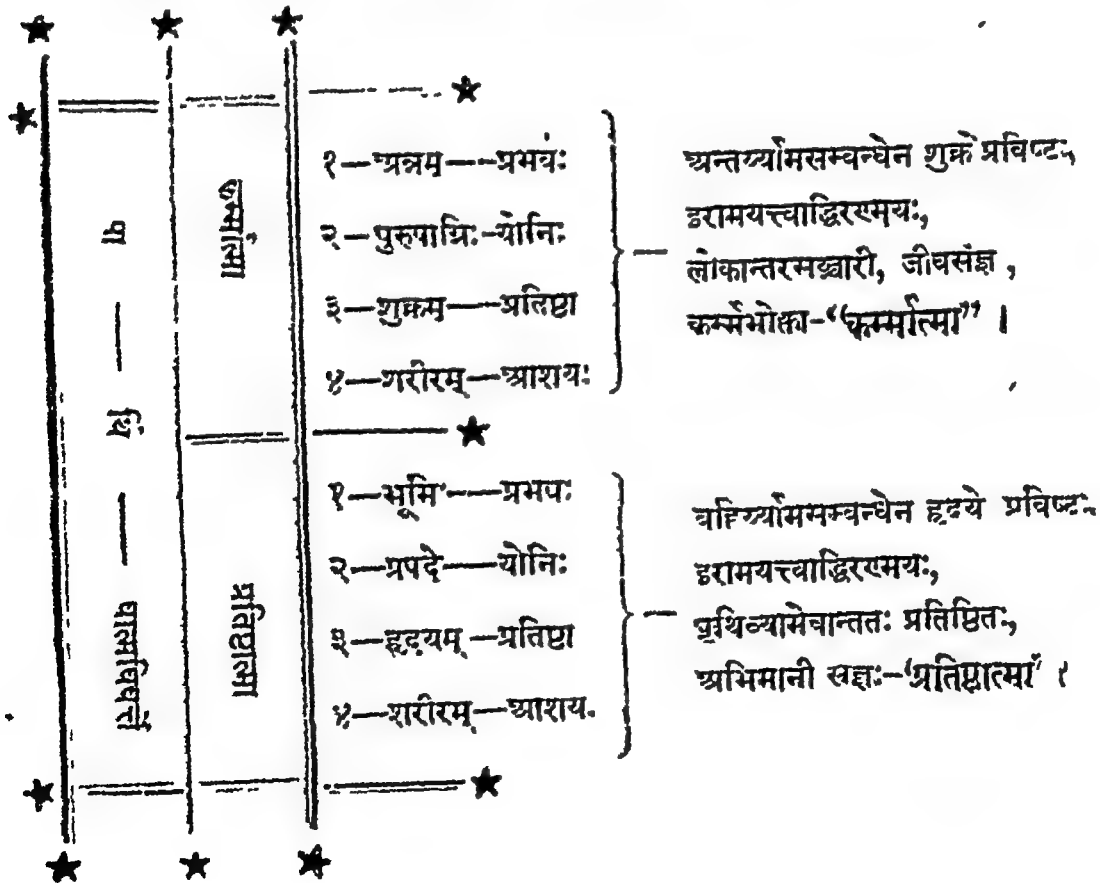 पा — र्थि — वात्मविवर्त्त
कर्म्मात्मा
१—अन्नम्—–प्रभवः
२—पुरुषाग्निः–योनिः
३—शुक्रम्—–प्रतिष्ठा
४—शरीरम्—आशयः
अन्तर्य्यामसम्बन्धेन शुक्रे प्रविष्टः,
इरामयत्त्वाद्धिरण्मयः,
लोकान्तरसञ्चारी, जीवसंज्ञ,
कर्म्मभोक्ता–“कर्म्मात्मा” ।
प्रतिष्ठात्मा
१—भूमि—–प्रभवः
२—प्रपदे——योनिः
३—हृदयम्—प्रतिष्ठा
४—शरीरम्—आशय.
वहिर्य्यामसम्बन्धेन हृदये प्रविष्टः,
इरामयत्त्वाद्धिरण्मयः,
पृथिव्यामेवान्ततः प्रतिष्ठितः,
अभिमानी –‘प्रतिष्ठात्मा’ ।